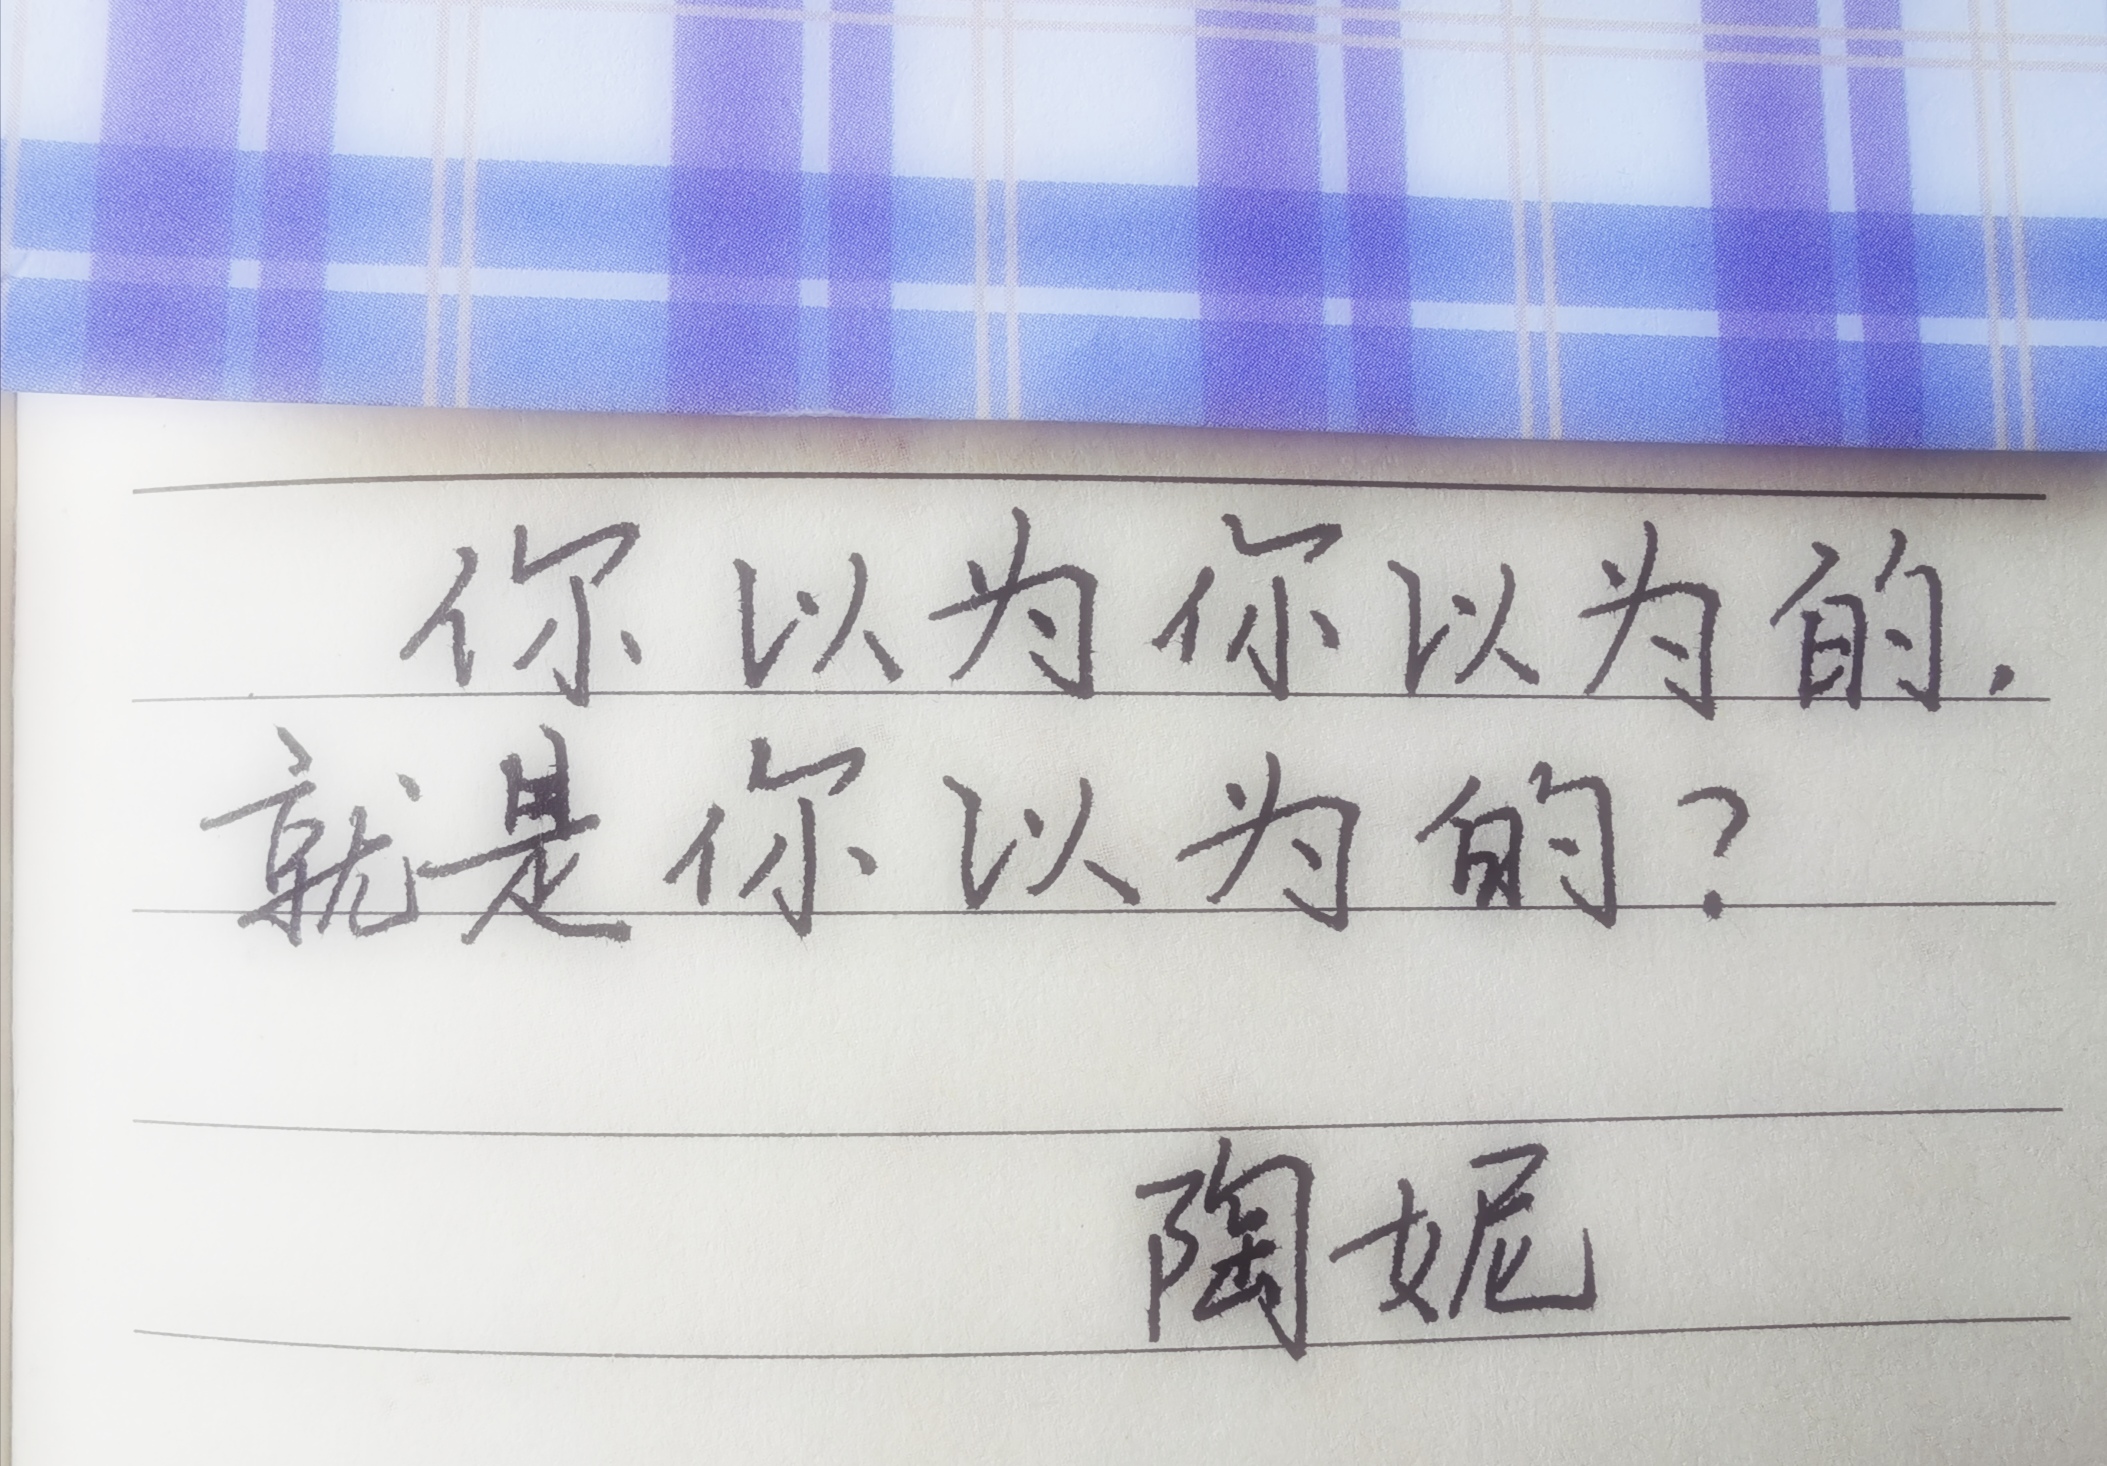 你以为你以为的.
就是你以为的?
陶妮